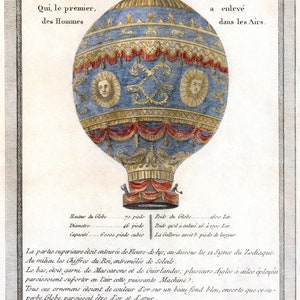 Qui, le premier, a enlevé
des Hommes dans les Airs.
Hauteur du Globe 70 pieds Poids du Globe 1600 liv.
Diametre 46 pieds Poids qu'il a enlevé
Capacité 60000 pieds cubes La Gallerie avoit 3 pieds de largeur
La partie supérieure étoit entourée de Fleurs-de-lys, au-dessous les 12 Signes du Zodiaque.
Au milieu les Chiffres du Roy, entremêlés de Soleils.
Le bas, étoit garni de Mascarons et de Guirlandes, plusieurs Aigles à ailes éployées
paroissoient supporter en l'air cette puissante Machine.
Tous ces ornemens étoient de couleur d'or sur un beau fond bleu, ensorte que ce su-
perbe Globe paroissoit être d'or et d'azur.